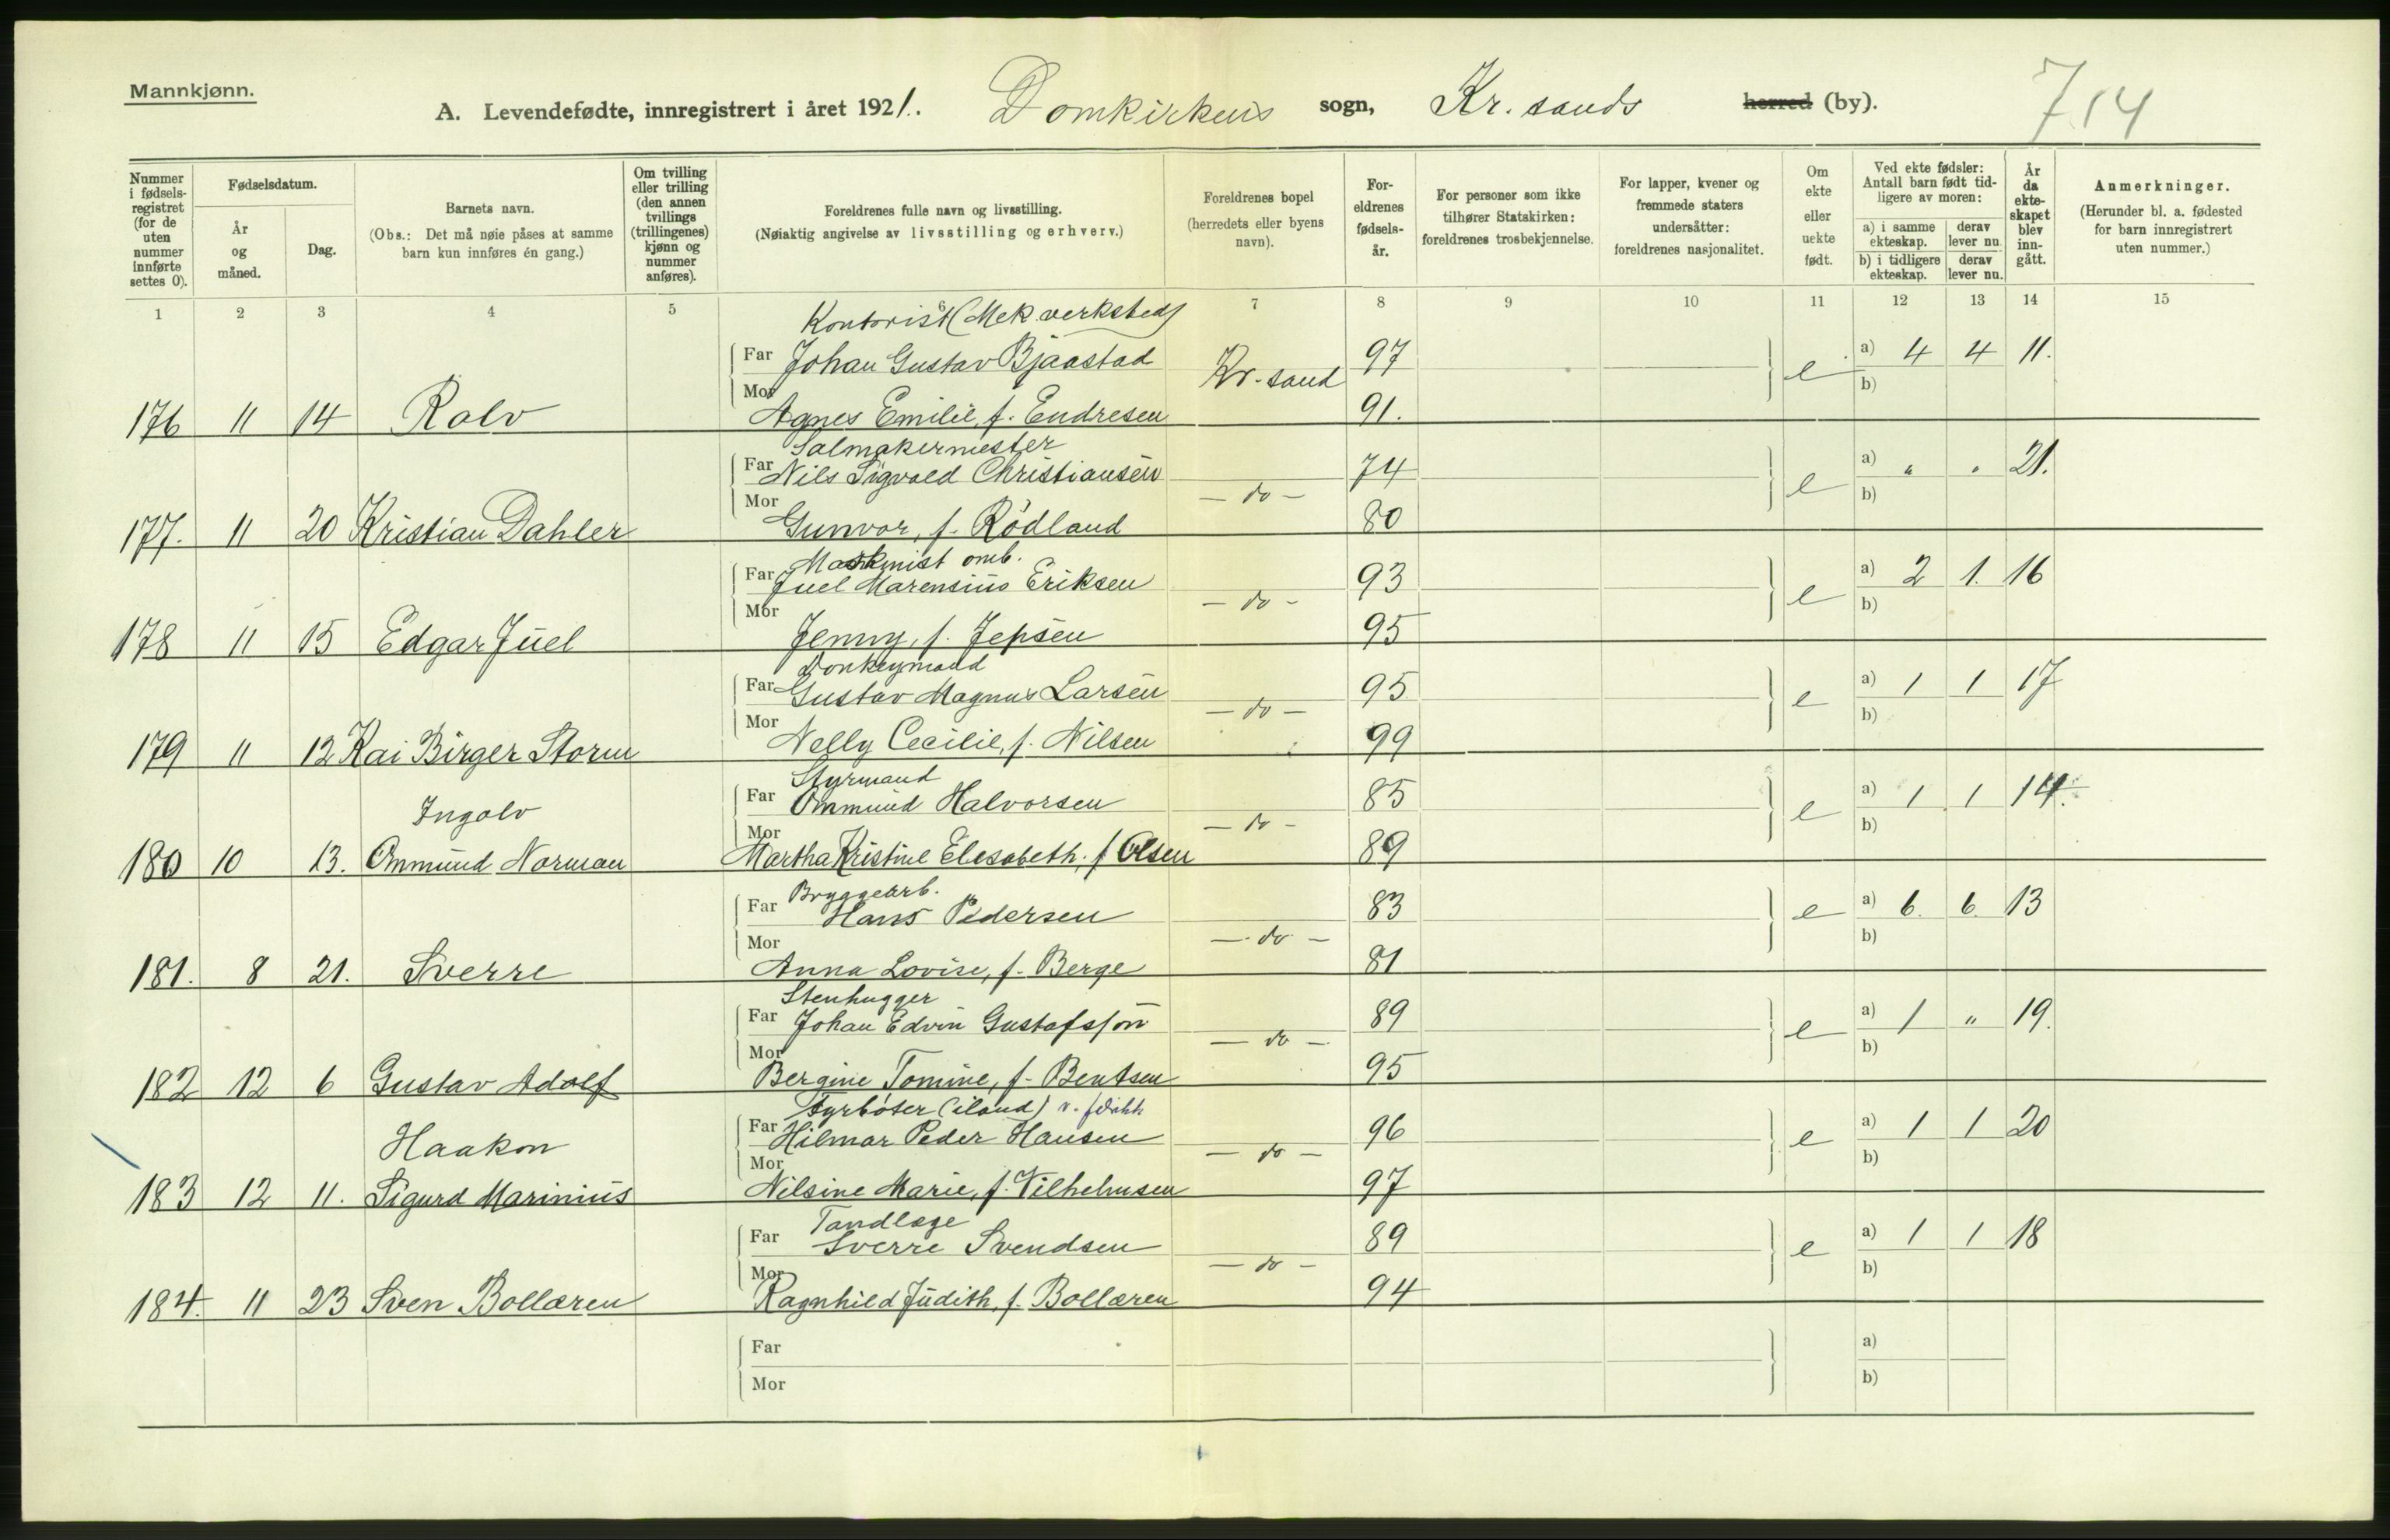 Mannkjønn.
A. Levendefødte, innregistrert i året 1921. Domkirkens sogn, Kr. sands herred (by). 714
Nummer i fødselsregistret (for de uten nummer innførte settes 0).
Fødselsdatum.
År og måned.
Dag.
Barnets navn.
(Obs.: Det må nøie påses at samme barn kun innføres én gang.)
Om tvilling eller trilling (den annen tvillings (trillingenes) kjønn og nummer anføres).
Foreldrenes fulle navn og livsstilling.
(Nøiaktig angivelse av livsstilling og erhverv.)
Foreldrenes bopel (herredets eller byens navn).
Foreldrenes fødselsår.
For personer som ikke tilhører Statskirken: foreldrenes trosbekjennelse.
For lapper, kvener og fremmede staters undersåtter: foreldrenes nasjonalitet.
Om ekte eller uekte født.
Ved ekte fødsler: Antall barn født tidligere av moren:
a) i samme ekteskap. derav lever nu.
b) i tidligere ekteskap. derav lever nu.
År da ekteskapet blev inngått.
Anmerkninger.
(Herunder bl. a. fødested for barn innregistrert uten nummer.)
1 2 3 4 5 6 7 8 9 10 11 12 13 14 15
Kontorist (Mek. verksted)
Far Johan Gustav Bjaastad Kr-sand 97 e a) 4 4 11.
Mor b)
176 11 14 Rolv Agnes Emilie, f. Endresen 91.
Salmakermester
Far Nils Sigvald Christiansen -do- 74 e a) " " 21.
Mor b)
177. 11 20 Kristian Dahler Gunvor, f. Rödland 80
Maskinist omb.
Far Juel Marensius Eriksen -do- 93 e a) 2 1. 16
Mor b)
178 11 15 Edgar Juel Jenny, f. Jepsen 95
Donkeymand
Far Gustav Magnus Larsen -do- 95 e a) 1 1 17
Mor b)
179 11 12 Kai Birger Storm Nelly Cecilie, f. Nilsen 99
Styrmand
Far Ommund Halvorsen -do- 85 e a) 1 1 14.
Ingolv
Mor b)
180 10 13. Ommund Norman Martha Kristine Elesabeth, f Olsen 89
Bryggearb.
Far Hans Pedersen -do- 83 e a) 6. 6. 13
Mor b)
181. 8 21. Sverre Anna Lovise, f. Berge 81
Stenhugger
Far Johan Edvin Gustafsson -do- 89 e a) 1 " 19.
Mor b)
182 12 6 Gustav Adolf Bergine Tomine, f. Bentsen 95
Fyrböter (iland) v.
Far Hilmar Peder Hansen -do- 96 e a) 1 1 20
Haakon
Mor b)
183 12 11. Sigurd Marinius Nilsine Marie, f. Vilhelmsen 97
Tandlæge
Far Sverre Svendsen -do- 89 e a) 1 1 18
Mor b)
184. 11 23 Sven Bollæren Ragnhild Judith, f. Bollæren 94
Far a)
Mor b)